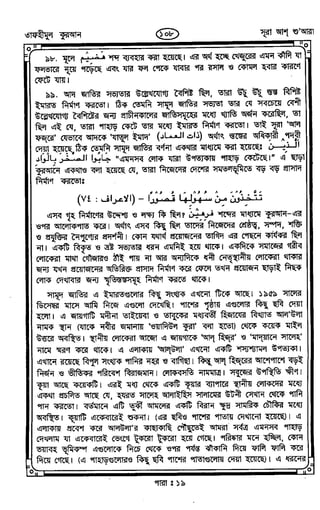 তাফহীমুল কুরআন ১০৮ সূরা আশ্ শু'আরা
৯৮. মূলে هضيم শব্দ ব্যবহার করা হয়েছে। এর অর্থ হচ্ছে খেজুরের এমন কাঁদি যা
ফলভারে নুয়ে পড়েছে এবং যার ফল পেকে যাবার পর রসাল ও কোমল হবার কারণে
ফেটে যায়।
৯৯. আদ জাতির সভ্যতার উল্লেখযোগ্য বৈশিষ্ট ছিল, তারা উঁচু উঁচু স্তম্ভ বিশিষ্ট
ইমারত নির্মাণ করতো। ঠিক তেমনি সামূদ জাতির সভ্যতা তার যে সবচেয়ে বেশী
উল্লেখযোগ্য বৈশিষ্টের জন্য প্রাচীনকালের জাতিসমূহের মধ্যে খ্যাতি অর্জন করেছিল, তা
ছিল এই যে, তারা পাহাড় কেটে তার মধ্যে ইমারত নির্মাণ করতো। তাই সূরা 'আল
ফজরে' যেভাবে আদকে 'যাতুল ইমাদ' (ذات العماد) অর্থাৎ স্তম্ভের অধিকারী পদবী
দেয়া হয়েছে, ঠিক তেমনি সামূদ জাতির বর্ণনা একথার মাধ্যমে করা হয়েছেঃ الذين
جابوا الصخر بالواد "এমনসব লোক যারা উপত্যকায় পাহাড় কেটেছে।" এ ছাড়া
কুরআনে একথাও বলা হয়েছে যে, তারা নিজেদের দেশের সমতলভূমিতে বড় বড় প্রাসাদ
নির্মাণ করতোঃ
تتخذون من سهولها قصورا - (الاعراف : ٧٤)
এসব গৃহ নির্মাণের উদ্দেশ্য ও লক্ষ্য কি ছিল? فرهين শব্দের মাধ্যমে কুরআন-এর
ওপর আলোকপাত করে। অর্থাৎ এসব কিছু ছিল তাদের নিজেদের শ্রেষ্ঠত্ব, সম্পদ, শক্তি
ও প্রযুক্তির নৈপুণ্যের প্রদর্শনী। কোন যথার্থ প্রয়োজনের তাগিদ এর পেছনে কার্যকর ছিল
না। একটি বিকৃত ও ভ্রষ্ট সভ্যতার ধরন এমনিই হয়ে থাকে। একদিকে সমাজের গরীব
লোকেরা মাথা গোঁজারও ঠাঁই পায় না আর অন্যদিকে ধনী নেতৃস্থানীয় লোকেরা থাকার
জন্য যখন প্রয়োজনের অতিরিক্ত প্রাসাদ নির্মাণ করে ফেলে তখন প্রয়োজন ছাড়াই নিছক
লোক দেখাবার জন্য স্মৃতিস্তম্ভসমূহ নির্মাণ করতে থাকে।
সামূদ জাতির এ ইমারতগুলোর কিছু সংখ্যক এখনো টিকে আছে। ১৯৫৯ সালের
ডিসেম্বর মাসে আমি নিজে এগুলো দেখেছি। পাশের পৃষ্ঠায় এগুলোর কিছু ছবি দেয়া
হলো। এ জায়গাটি মদীনা তাইয়েবা ও তাবুকের মধ্যবর্তী হিজাযের বিখ্যাত আল'উলা
নামক স্থান (যাকে নবীর জমানায় 'ওয়াদিউল কুরা' বলা হতো) থেকে কয়েক মাইল
উত্তরে অবস্থিত। স্থানীয় লোকেরা আজো এ জায়গাকে 'আল হিজ্‌র' ও 'মাদায়েনে সালেহ'
নামে স্মরণ করে থাকে। এ এলাকায় 'আলউলা' এখনো একটি শস্যশ্যামল উপত্যকা।
এখানে রয়েছে বিপুল সংখ্যক পানির নহর ও বাগান। কিন্তু আল হিজ্‌রের আশেপাশে বড়ই
নির্জন ও ভীতিকর পরিবেশ বিরাজমান। লোকবসতি নামমাত্র। সবুজের উপস্থিতি ক্ষীণ।
কূয়া আছে কয়েকটি। এরই মধ্য থেকে একটি কূয়ার ব্যাপারে স্থানীয় লোকদের মধ্যে
একথা প্রচলিত আছে যে, হযরত সালেহ আলাইহিস সালামের উটনী সেখান থেকে পানি
পান করতো। বর্তমানে এটি তুর্কী আমলের একটি বিরান ক্ষুদ্র সামরিক চৌকির মধ্যে
অবস্থিত। কূয়াটি একেবারেই শুকনা। (এর ছবিও পাশের পাতায় দেখানো হয়েছে)। এ
এলাকায় প্রবেশ করে আলউলা'র কাছাকাছি পৌছুতেই আমরা সর্বত্র এমনসব পাহাড়
দেখলাম যা একেবারেই ভেংগে টুকরো টুকরো হয়ে গেছে। পরিষ্কার মনে হচ্ছিল, কোন
ভয়াবহ ভূমিকম্প এগুলোকে নিচে থেকে ওপর পর্যন্ত ঝাঁকানি দিয়ে ফালি ফালি করে
দিয়ে গেছে। (এ পাহাড়গুলোরও কিছু ছবি পাশের পাতাগুলোয় দেয়া হয়েছে)। এ ধরনের
পারা : ১৯